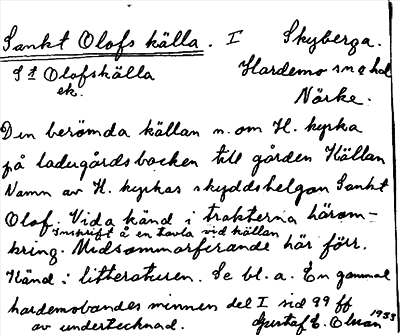 Sankt Olofs källa. I Skyberga.
St Olofskälla Hardemo sn o hd
ek. Närke.
Den berömda källan n. om H. kyrka
på ladugårdsbacken till gården Källan
Namn av H. kyrkas skyddshelgon Sankt
Olof. Vida känd i trakterna härom-
Inskrift å en tavla vid källan
kring. Midsommarfirande här förr.
Känd i litteraturen. Se bl. a. En gammal
hardemobondes minnen del I sid 99 ff
av undertecknad. Gustaf E. Olsson 1953